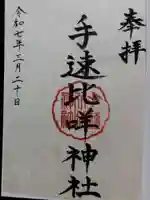 奉拝
手速比咩神社
令和七年三月二十日